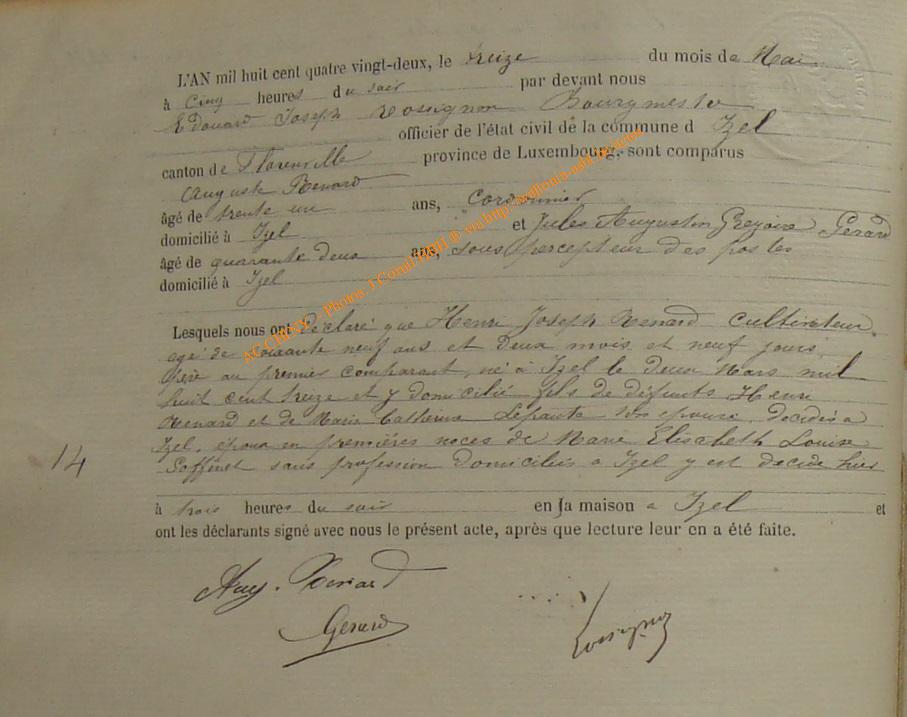 L'AN mil huit cent quatre vingt-deux, le treize du mois de Mai
à Cinq heures du soir par devant nous
Edouard Joseph Rossignon Bourgmestre
officier de l'état civil de la commune d Izel
canton de Florenville province de Luxembourg, sont comparus
Auguste Renard
âgé de trente un ans, cordonnier
domicilié à Izel et Jules Augustin Gregoire Gerard
âgé de quarante deux ans, sous percepteur des postes
domicilié à Izel
Lesquels nous ont déclaré que Henri Joseph Renard Cultivateur
agé de soixante neuf ans et deux mois et neuf jours,
père au premier comparant, né à Izel le deux Mars mil
huit cent treize et y domicilié fils de défunts Henri
Renard et de Marie Catherine son épouse, décédés à
Izel, époux en premières noces de Marie Elisabeth Louise
Goffinet sans profession domiciliée a Izel y est décédé hier
14
à trois heures du soir en sa maison a Izel et
ont les déclarants signé avec nous le présent acte, après que lecture leur en a été faite.
Aug. Renard
Gerard
Rossignon